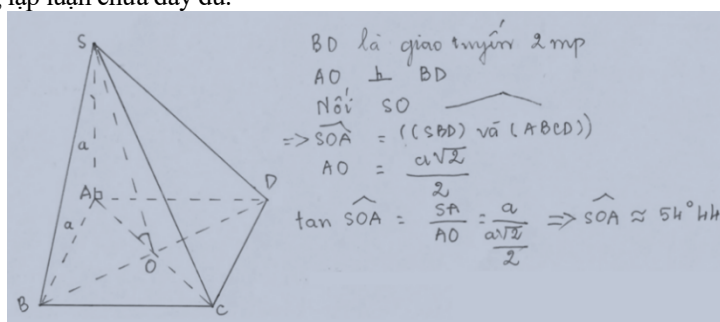 lập luận chưa đầy đủ.
S
a
A
a
D
O
B
C
BD là giao tuyến 2 mp
AO ⊥ BD
Nối SO
=> SOA = ((SBD) và (ABCD))
AO = a√2 / 2
tan SOA = SA / AO = a / (a√2 / 2) => SOA ≈ 54°44